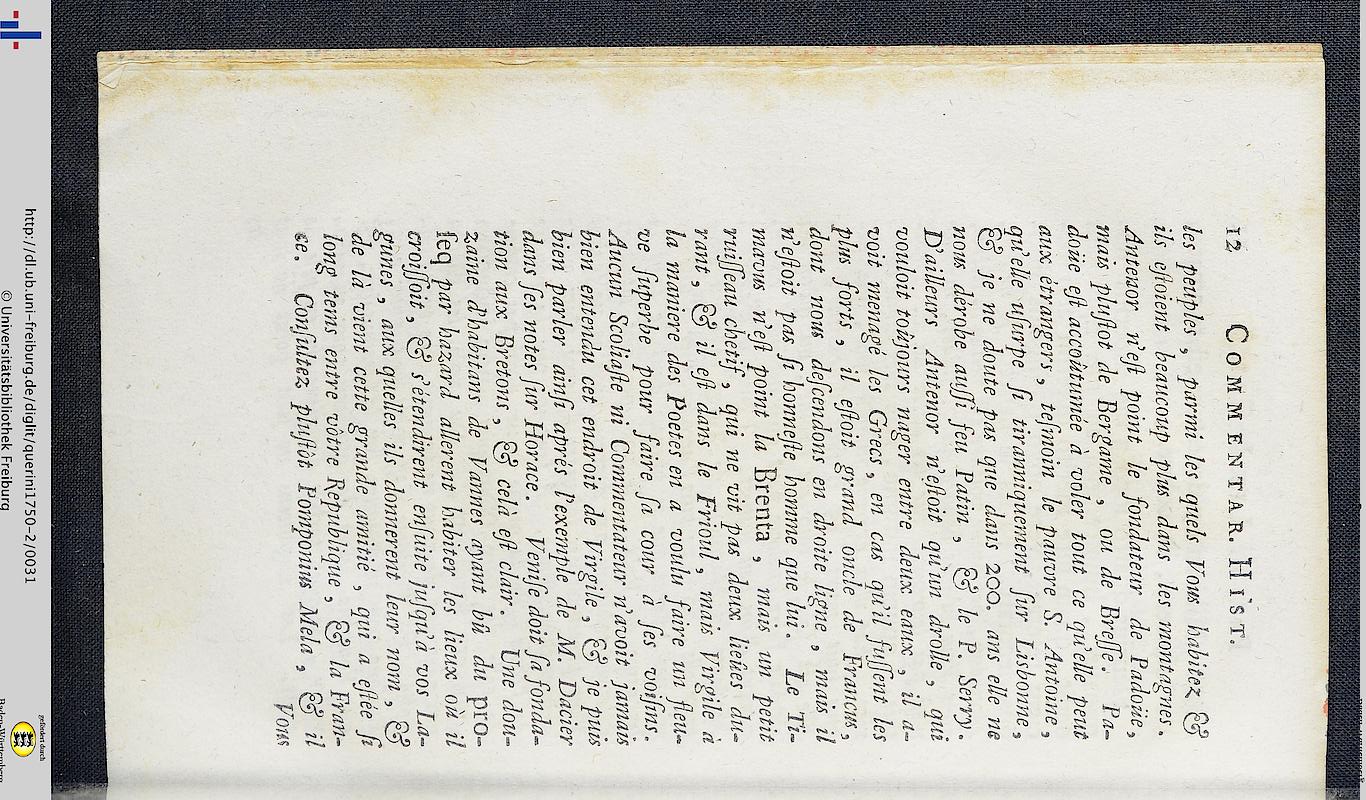 12 COMMENTAR. HIST.
les peuples, parmi les quels Vous habitez &
ils eſtoient beaucoup plus dans les montagnes.
Antenor n'eſt point le fondateur de Padoüe,
mais pluſtot de Bergame, ou de Breſſe. Pa-
doüe eſt accoûtumée à voler tout ce qu'elle peut
aux étrangers, teſmoin le pauvre S. Antoine,
qu'elle uſurpe ſi tiranniquement ſur Lisbonne,
& je ne doute pas que dans 200. ans elle ne
nous dérobe auſſi feu Patin, & le P. Serry.
D'ailleurs Antenor n'eſtoit qu'un drolle, qui
vouloit toûjours nager entre deux eaux, il a-
voit menagé les Grecs, en cas qu'il fuſſent les
plus forts, il eſtoit grand oncle de Francus,
dont nous deſcendons en droite ligne, mais il
n'eſtoit pas ſi honneſte homme que lui. Le Ti-
mavus n'eſt point la Brenta, mais un petit
ruiſſeau chetif, qui ne vit pas deux lieües du-
rant, & il eſt dans le Frioul, mais Virgile à
la maniere des Poetes en a voulu faire un fleu-
ve ſuperbe pour faire ſa cour à ſes voiſins.
Aucun Scoliaſte ni Commentateur n'avoit jamais
bien entendu cet endroit de Virgile, & je puis
bien parler ainſi aprés l'exemple de M. Dacier
dans ſes notes ſur Horace. Veniſe doit ſa fonda-
tion aux Bretons, & celà eſt clair. Une dou-
zaine d'habitans de Vannes ayant bû du pro-
ſeq par hazard allerent habiter les lieux où il
croiſſoit, & s'étendirent enſuite juſqu'à vos La-
gunes, aux quelles ils donnerent leur nom, &
de là vient cette grande amitié, qui a eſtée ſi
long tems entre votre Republique, & la Fran-
ce. Conſultez pluſtôt Pomponius Mela, & il
Vous
http://dl.ub.uni-freiburg.de/diglit/querini1750-2/0031
© Universitätsbibliothek Freiburg
gefördert durch